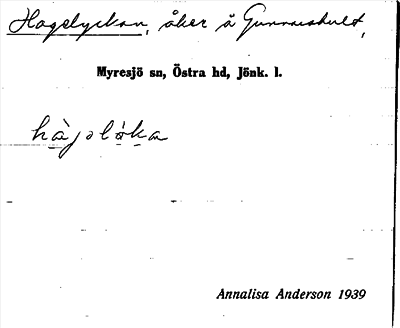 Hagelyckan, åker å Gunnarshult,
Myresjö sn, Östra hd, Jönk. l.
hàjolö́ka
Annalisa Anderson 1939